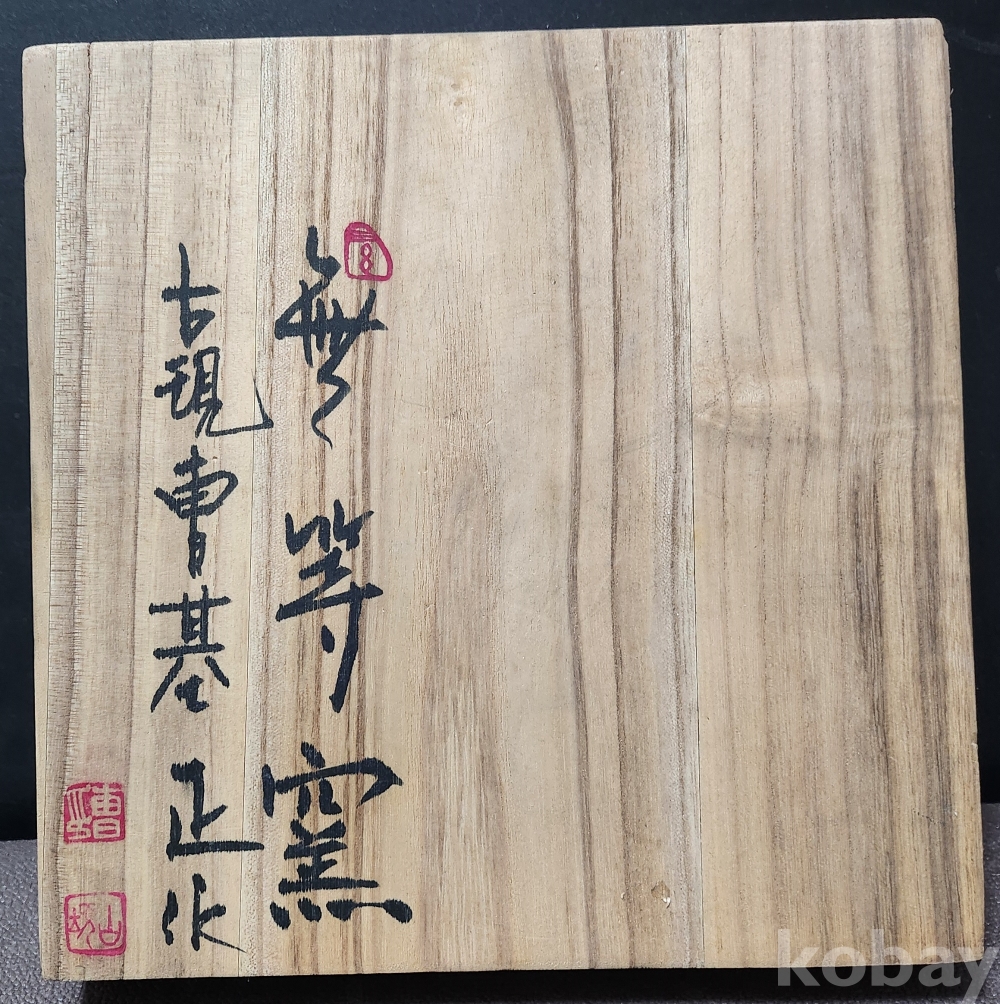 無等窯
古現曺基正作
kobay